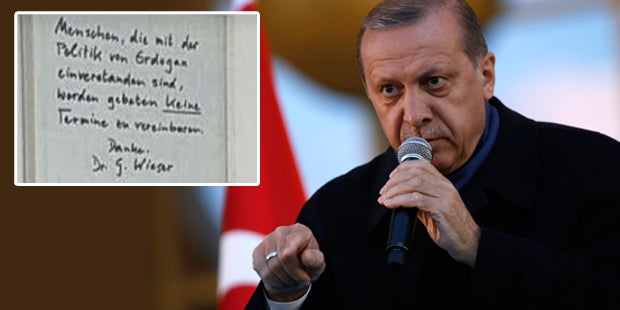 Menschen, die mit der
Politik von Erdogan
einverstanden sind,
werden gebeten keine
Termine zu vereinbaren.
Danke.
Dr. G. Wieser